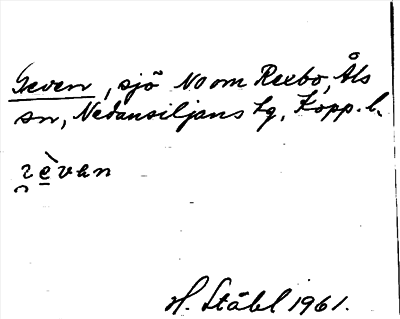 Geven, sjö NO om Rexbo, Åls
sn, Nedansiljans tg, Kopp. l.
H. Ståhl 1961.